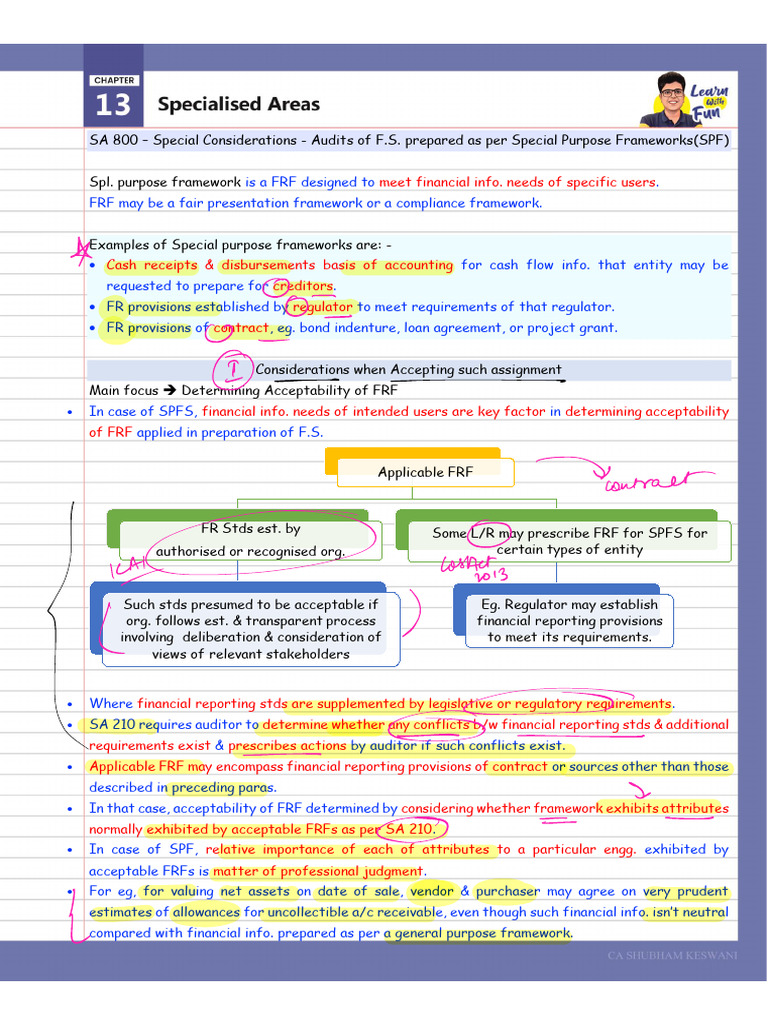 CHAPTER
13
Specialised Areas
Learn
With
Fun
SA 800 – Special Considerations - Audits of F.S. prepared as per Special Purpose Frameworks(SPF)
Spl. purpose framework is a FRF designed to meet financial info. needs of specific users.
FRF may be a fair presentation framework or a compliance framework.
Examples of Special purpose frameworks are: -
• Cash receipts & disbursements basis of accounting for cash flow info. that entity may be
requested to prepare for creditors.
• FR provisions established by regulator to meet requirements of that regulator.
• FR provisions of contract, eg. bond indenture, loan agreement, or project grant.
I
Considerations when Accepting such assignment
Main focus ➔ Determining Acceptability of FRF
• In case of SPFS, financial info. needs of intended users are key factor in determining acceptability
of FRF applied in preparation of F.S.
Applicable FRF
contract
FR Stds est. by
authorised or recognised org.
ICAI
Some L/R may prescribe FRF for SPFS for
certain types of entity
2013
Such stds presumed to be acceptable if
org. follows est. & transparent process
involving deliberation & consideration of
views of relevant stakeholders
Eg. Regulator may establish
financial reporting provisions
to meet its requirements.
• Where financial reporting stds are supplemented by legislative or regulatory requirements.
• SA 210 requires auditor to determine whether any conflicts b/w financial reporting stds & additional
requirements exist & prescribes actions by auditor if such conflicts exist.
• Applicable FRF may encompass financial reporting provisions of contract or sources other than those
described in preceding paras.
• In that case, acceptability of FRF determined by considering whether framework exhibits attributes
normally exhibited by acceptable FRFs as per SA 210.
• In case of SPF, relative importance of each of attributes to a particular engg. exhibited by
acceptable FRFs is matter of professional judgment.
• For eg, for valuing net assets on date of sale, vendor & purchaser may agree on very prudent
estimates of allowances for uncollectible a/c receivable, even though such financial info. isn't neutral
compared with financial info. prepared as per a general purpose framework.
CA SHUBHAM KESWANI